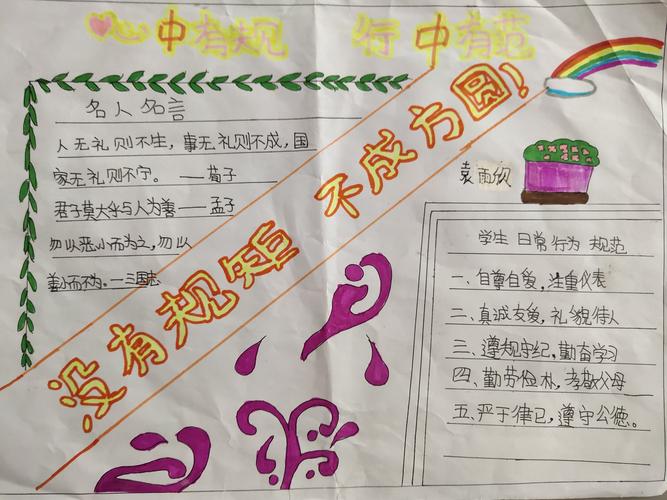 心中有规 行中有范
没有规矩 不成方圆！
名人名言
人无礼则不生，事无礼则不成，国
家无礼则不宁。——荀子
君子莫大乎与人为善——孟子
勿以恶小而为之，勿以
善小而不为。—三国志
袁雨欣
学生日常行为规范
一、自尊自爱，注重仪表
二、真诚友爱，礼貌待人
三、遵规守纪，勤奋学习
四、勤劳俭朴，孝敬父母
五、严于律已，遵守公德。